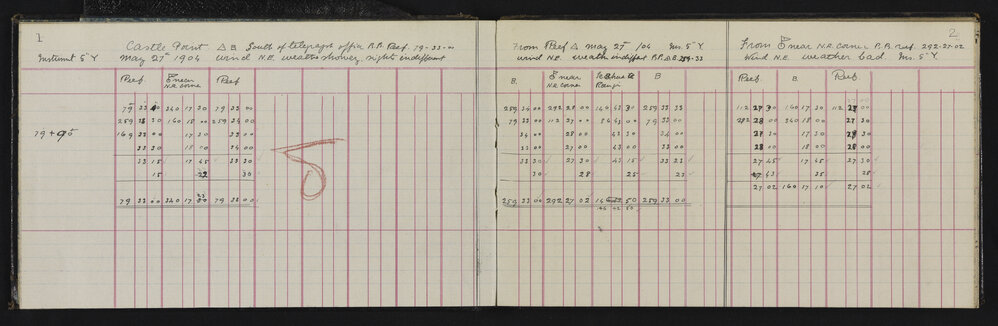 1
Castle Point △ B South of telegraph office R.P. Reef. 79-33-00
Instrumt 5" Y May 27th 1904 wind N.E. weather showery sights indifferent
Reef E near N.E. corner Reef
79 33 00 340 17 30 79 33 00
259 160 18 00 259 34 00
79+95 169 33 00 17 30 33 00
33 30 18 00 34 00
33 15 17 45 33 30
15 30
23
79 33 00 340 17 79 33 00
2
From Reef △ May 27th /04 Ins. 5" Y
wind N.E. weath indifft R.P. △ B 259-33
B. E near N.E. corner Range B
259 34 00 292 28 00 146 43 30 259 33 33
79 33 00 112 27 00 43 00 79 33 00
34 00 28 00 43 30 34 00
33 00 27 00 43 00 33 00
33 30 27 30 43 15 33 23
30 28 25 23
259 33 00 292 27 02 146 50 259 33 00
146 42 50
From E near N.E. corner R.P. reef. 292-27-02
Wind N.E. weather bad Ins. 5" Y
Reef B. Reef
112 27 30 160 17 30 112 27 00
292 28 00 340 18 00 27 30
27 30 17 30 27 30
28 00 18 00 28 00
27 45 17 45 27 30
43 35 28
27 02 160 17 10 27 02